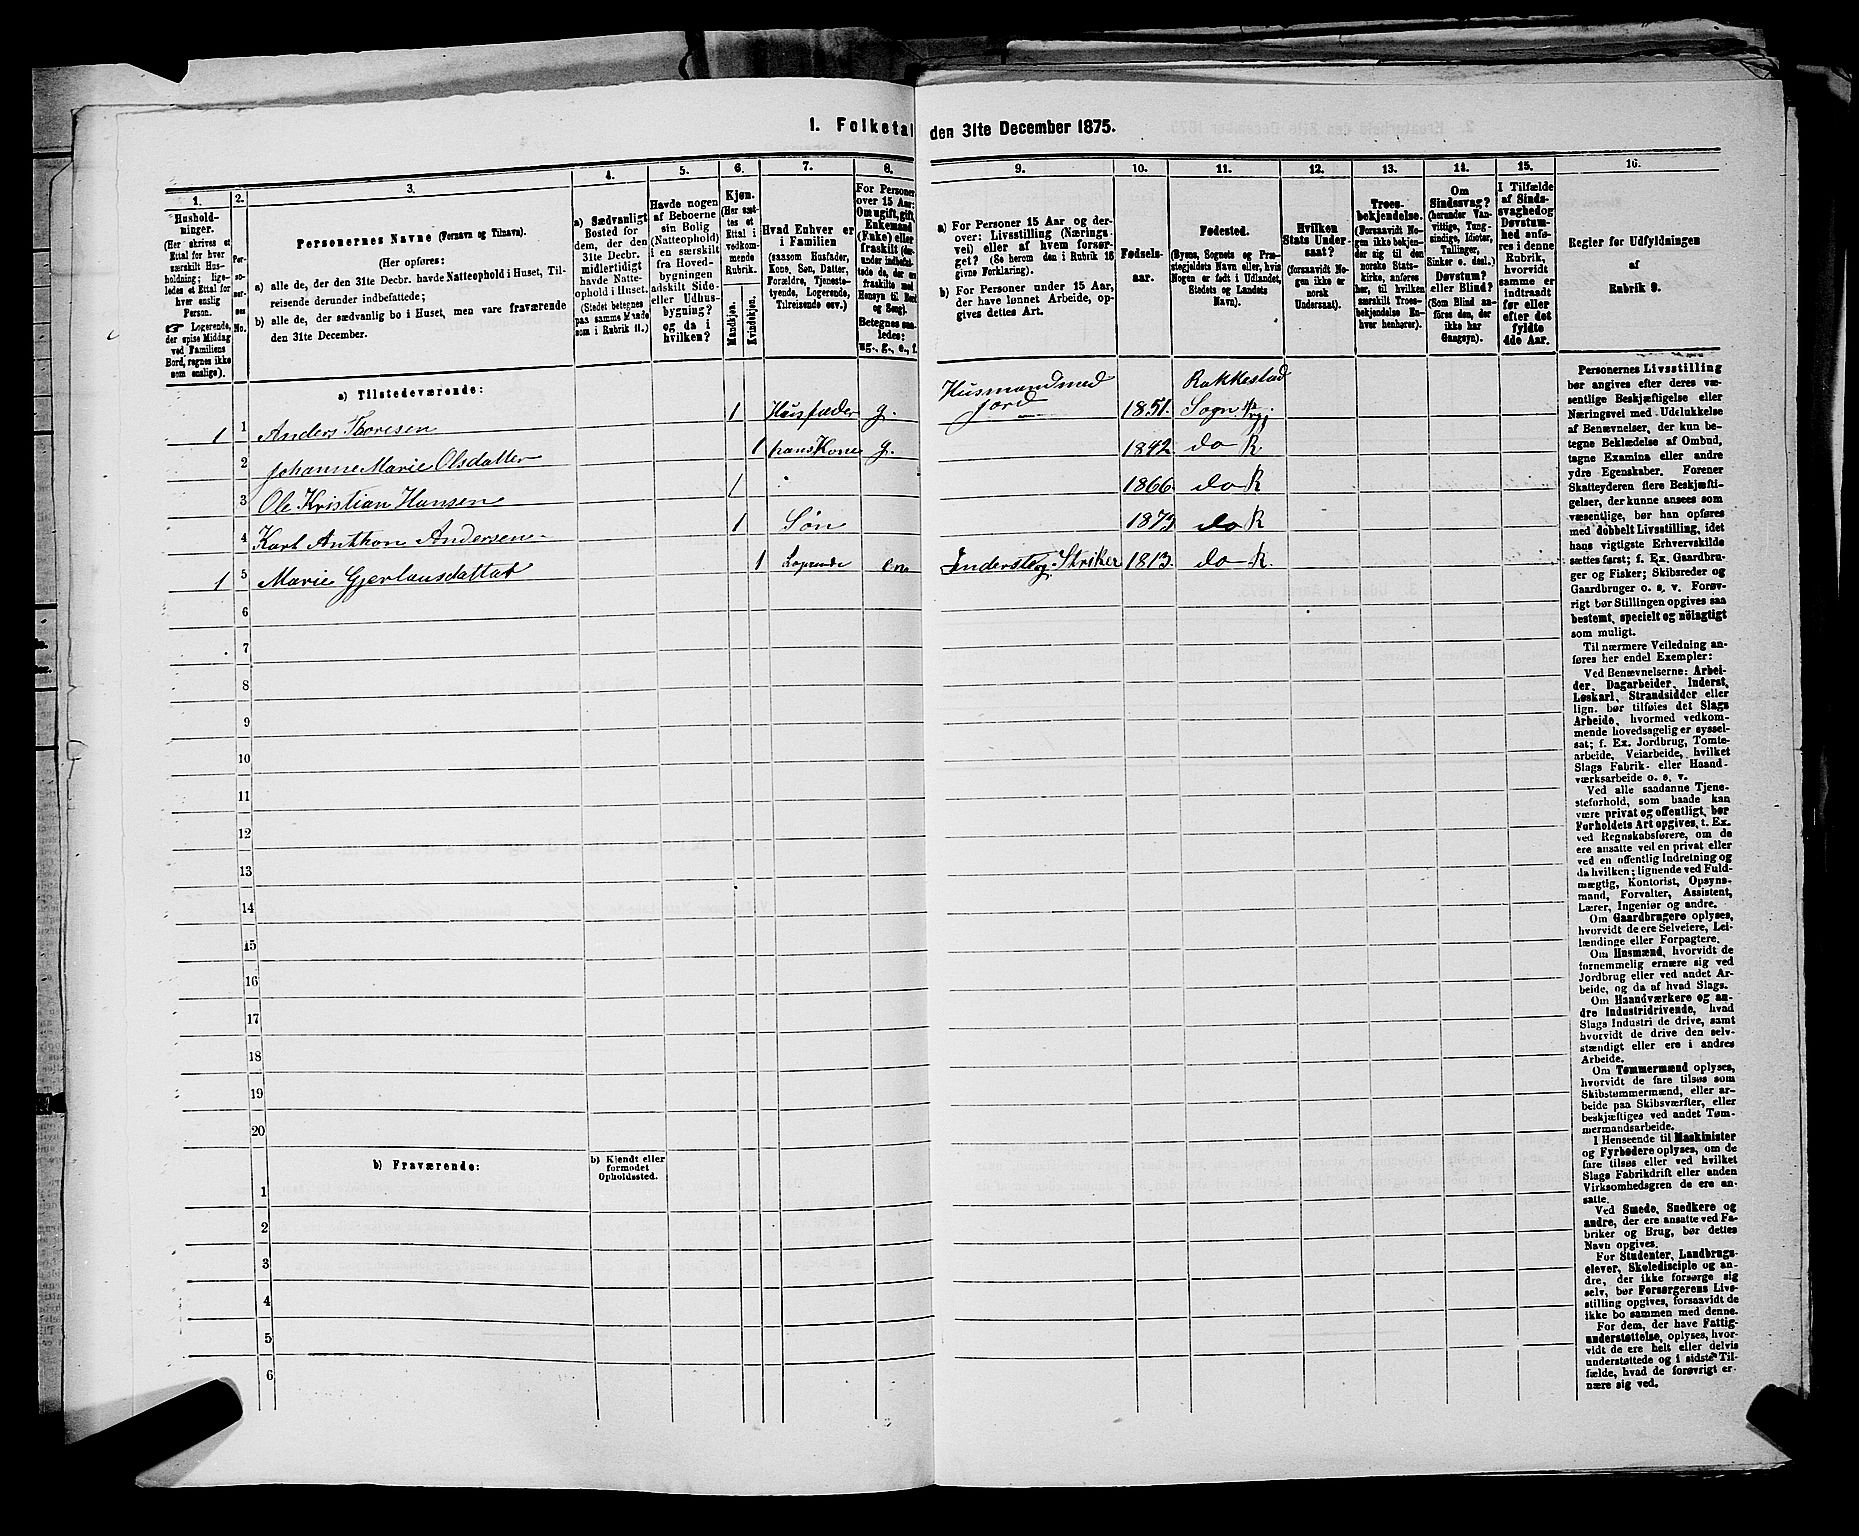 1. Folketal den 31te December 1875.
1.
Hushold-
ninger.
(Her skrives et
Ettal for hver
særskilt Hus-
holdning; lige-
ledes et Ettal for
hver enslig
Person.
Logerende,
der spise Middag
ved Familiens
Bord, regnes ikke
som enslige).
2.
Per-
so-
ner-
nes
No.
3.
Personernes Navne (Fornavn og Tilnavn).
(Her opføres:
a) alle de, der den 31te Decbr. havde Natteophold i Huset, Til-
reisende derunder indbefattede;
b) alle de, der sædvanlig bo i Huset, men vare fraværende
den 31te December.
4.
a) Sædvanligt
Bosted for
dem, der den
31te Decbr.
midlertidigt
havde Natte-
ophold i Huset.
(Stedet betegnes
paa samme Maade
som i Rubrik 11.)
5.
Havde nogen
af Beboerne
sin Bolig
(Natteophold)
i en særskilt
fra Hoved-
bygningen
adskilt Side-
eller Udhus-
bygning?
og da i
hvilken?
6.
Kjøn.
(Her sæt-
tes et
Ettal i
vedkom-
mende
Rubrik.
Mandkjøn.
Kvindekjøn.
7.
Hvad Enhver er
i Familien
(saasom Husfader,
Kone, Søn, Datter,
Forældre, Tjeneste-
tyende, Logerende,
Tilreisende osv.)
8.
For Personer
over 15 Aar:
Om ugift, gift,
Enkemand
(Enke) eller
fraskilt
Betegnes saa-
ledes:
ug., g., e., f.
9.
a) For Personer 15 Aar og der-
over: Livsstilling (Nærings-
vei) eller af hvem forsør-
get? (Se herom den i Rubrik 16
givne Forklaring).
b) For Personer under 15 Aar,
der have lønnet Arbeide, op-
gives dettes Art.
10.
Fødsels-
aar.
11.
Fødested.
(Byens, Sognets og Præ-
stegjeldets Navn eller, hvis
Nogen er født i Udlandet,
Stedets og Landets
Navn).
12.
Hvilken
Stats Under-
saat?
(forsaavidt No-
gen ikke er
norsk
Undersaat).
13.
Troes-
bekjendelse.
(Forsaavidt No-
gen ikke bekjen-
der sig til den
norske Stats-
kirke, anføres
her, til hvilken
særskilt Troes-
bekjendelse En-
hver henhører).
14.
Om
Sindssvag?
(herunder Van-
vittige, Tung-
sindige, Idioter,
Tullinger,
Sinker o. desl.)
Døvstum?
eller Blind?
(Som Blind an-
føres den, der
ikke har
Gangsyn).
15.
I Tilfælde
af Sinds-
svaghed og
Døvstum-
hed anfø-
res i denne
Rubrik,
hvorvidt
samme er
indtraadt
før eller
efter det
fyldte
4de Aar.
16.
Regler for Udfyldningen
af
Rubrik 9.
a) Tilstedeværende:
1 1 Anders Thoresen 1 Husfader g. Husmand med Jord 1851. Rakkestad Sogn
2 Johanne Marie Olsdatter 1 hans Kone g. 1842 do R
3 Ole Kristian Hansen 1 1866 do R
4 Karl Anthon Andersen 1 Søn 1873 do R
1 5 Marie Gjerlausdatter 1 e 1813 do R.
6
7
8
9
10
11
12
13
14
15
16
17
18
19
20
b) Fraværende:
b) Kjendt eller
formodet
Opholdssted.
1
2
3
4
5
6
Personernes Livsstilling
bør angives efter deres væ-
sentlige Beskjæftigelse eller
Næringsvei med Udelukkelse
af Benævnelser, der kun be-
tegne Beklædelse af Ombud,
tagne Examina eller andre
ydre Egenskaber. Forener
Skatteyderen flere Beskjæfti-
gelser, der kunne ansees som
væsentlige, bør han opføres
med dobbelt Livsstilling, idet
hans vigtigste Erhvervskilde
sættes først; f. Ex. Gaardbru-
ger og Fisker; Skibsreder og
Gaardbruger o. s. v. Forøv-
rigt bør Stillingen opgives saa
bestemt, specielt og nöiagtigt
som muligt.
Til nærmere Veiledning an-
føres her endel Exempler:
Ved Benævnelserne: Arbei-
der, Dagarbeider, Inderst,
Løskarl, Strandsidder eller
lign. bør tilføies det Slags
Arbeide, hvormed vedkom-
mende hovedsagelig er syssel-
sat; f. Ex. Jordbrug, Tomte-
arbeide, Veiarbeide, hvilket
Slags Fabrik- eller Haand-
værksarbeide o. s. v.
Ved alle saadanne Tjene-
steforhold, som baade kan
være privat og offentligt, bør
Forholdets Art opgives, t. Ex.
ved Regnskabsførere, om de
ere ansatte ved en privat eller
ved en offentlig Indretning og
da hvilken; lignende ved Fuld-
mægtig, Kontorist, Opsyns-
mand, Forvalter, Assistent,
Lærer, Ingeniør og andre.
Om Gaardbrugere oplyses,
hvorvidt de ere Selveiere, Lei-
lændinge eller Forpagtere.
Om Husmænd, hvorvidt de
fornemmelig ernære sig ved
Jordbrug eller ved andet Ar-
beide, og da af hvad Slags.
Om Haandværkere og an-
dre Industridrivende, hvad
Slags Industri de drive, samt
hvorvidt de drive den selv-
stændigt eller ere i andres
Arbeide.
Om Tømmermænd oplyses,
hvorvidt de fare tilsøs som
Skibstømmermænd, eller ar-
beide paa Skibsværfter, eller
beskjæftiges ved andet Tøm-
mermandsarbeide.
I Henseende til Maskinister
og Fyrbødere oplyses, om de
fare tilsøs eller ved hvilket
Slags Fabrikdrift eller anden
Virksomhedsgren de ere an-
satte.
Ved Smede, Snedkere og
andre, der ere ansatte ved Fa-
briker og Brug, bør dettes
Navn opgives.
For Studenter, Landbrugs-
elever, Skoledisciple og an-
dre, der ikke forsørge sig
selv, bør Forsørgerens Livs-
stilling opgives, forsaavidt de
ikke bo sammen med denne.
For dem, der have Fattig-
understøttelse, oplyses, hvor-
vidt de ere helt eller delvis
understøttede og i sidste Til-
fælde, hvad de forøvrigt er-
nære sig ved.